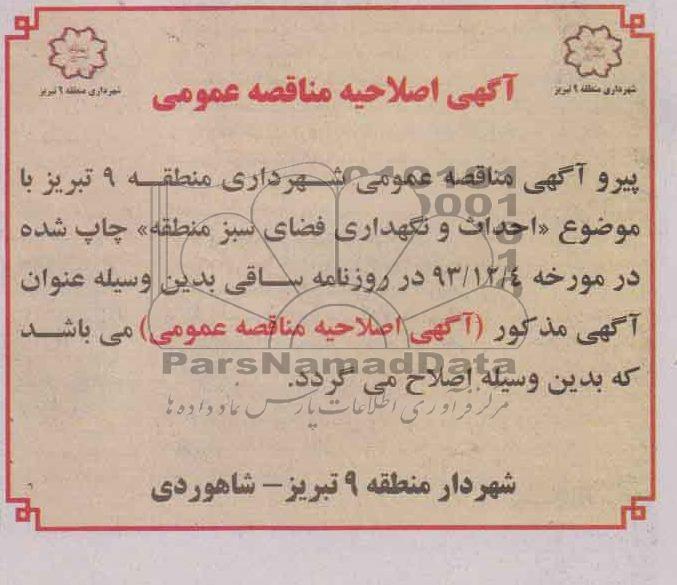 شهرداری منطقه ۹ تبریز
شهرداری منطقه ۹ تبریز
آگهی اصلاحیه مناقصه عمومی
پیرو آگهی مناقصه عمومی شهرداری منطقه ۹ تبریز با
موضوع «احداث و نگهداری فضای سبز منطقه» چاپ شده
در مورخه ۹۳/۱۲/٤ در روزنامه ساقی بدین وسیله عنوان
آگهی مذکور (آگهی اصلاحیه مناقصه عمومی) می باشد
که بدین وسیله اصلاح می گردد.
ParsNamadData
مرکز فرآوری اطلاعات پارس نماد داده ها
شهردار منطقه ۹ تبریز – شاهوردی